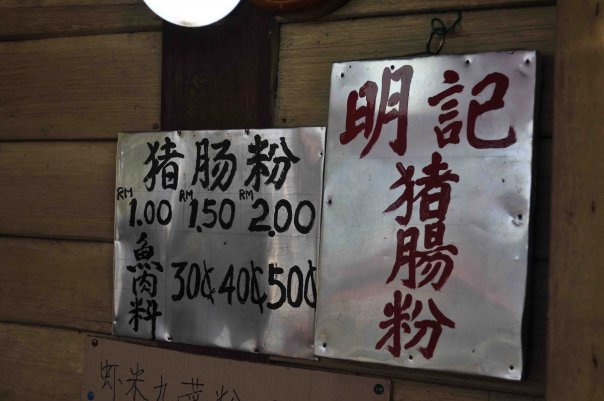 猪肠粉
RM 1.00 RM 1.50 RM 2.00
魚肉料 30¢ 40¢ 50¢
明記
猪腸粉
虾米九菜粉